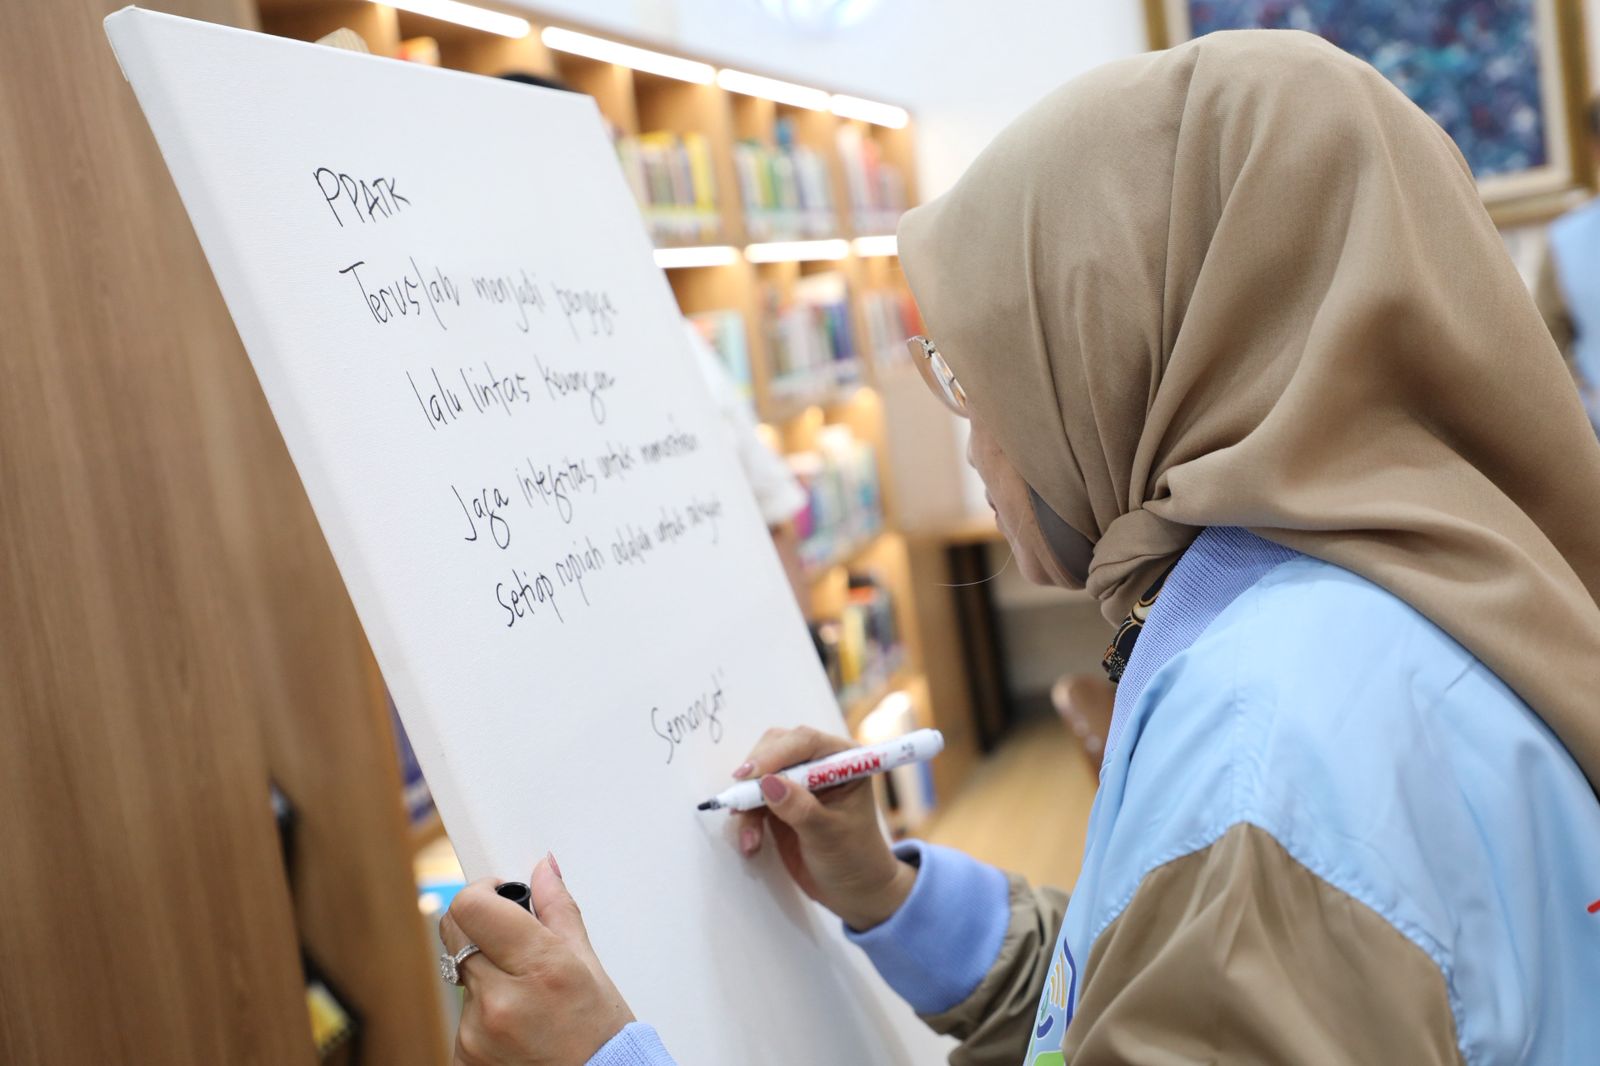 PPATK
Teruslah menjadi penjaga
lalu lintas keuangan
Jaga integritas untuk memastikan
setiap rupiah adalah untuk rakyat
Semangat!
SNOWMAN